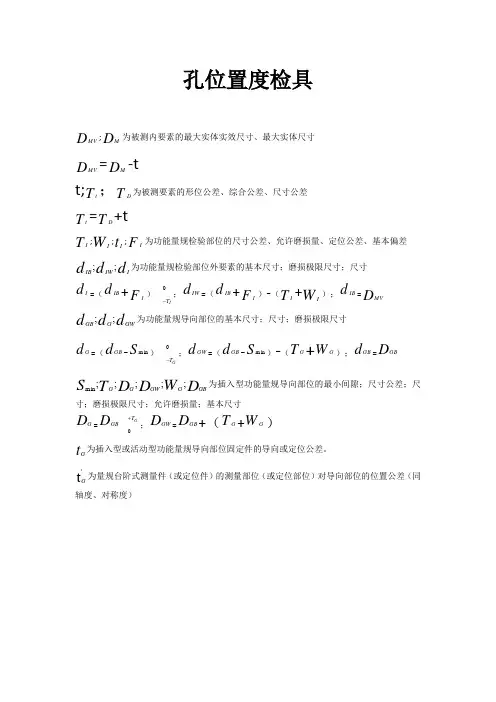 孔位置度检具
D_MV;D_M为被测内要素的最大实体实效尺寸、最大实体尺寸
D_MV=D_M-t
t;T_t;T_D为被测要素的形位公差、综合公差、尺寸公差
T_t=T_D+t
T_I;W_I;t_I;F_I为功能量规检验部位的尺寸公差、允许磨损量、定位公差、基本偏差
d_IB;d_IW;d_I为功能量规检验部位外要素的基本尺寸;磨损极限尺寸;尺寸
d_I=(d_IB+F_I) 0 -T_I;d_IW=(d_IB+F_I)-(T_I+W_I);d_IB=D_MV
d_GB;d_G;d_GW为功能量规导向部位的基本尺寸;尺寸;磨损极限尺寸
d_G=(d_GB-S_min) 0 -T_G;d_GW=(d_GB-S_min)-(T_G+W_G);d_GB=D_GB
S_min;T_G;D_G;D_GW;W_G;D_GB为插入型功能量规导向部位的最小间隙;尺寸公差;尺
寸;磨损极限尺寸;允许磨损量;基本尺寸
D_G=D_GB +T_G 0;D_GW=D_GB+(T_G+W_G)
t_G为插入型或活动型功能量规导向部位固定件的导向或定位公差。
t'_G为量规台阶式测量件(或定位件)的测量部位(或定位部位)对导向部位的位置公差(同
轴度、对称度)